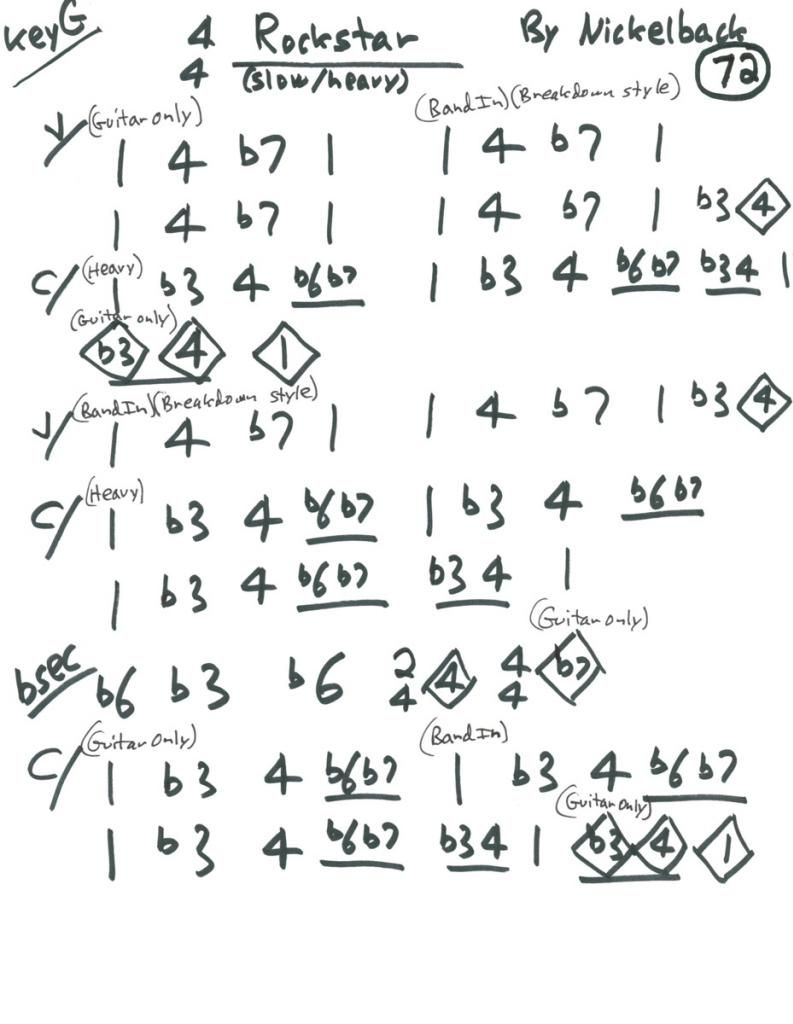 key G 4 Rockstar By Nickelback
4 (slow/heavy) 72
V/ (Guitar only) 1 4 b7 1 (Band In)(Breakdown style) 1 4 b7 1
1 4 b7 1 1 4 b7 1 b3 4
C/ (Heavy) 1 b3 4 b6 b7 1 b3 4 b6 b7 b3 4 1
(Guitar only)
b3 4 1
V/ (Band In)(Breakdown style) 1 4 b7 1 1 4 b7 1 b3 4
C/ (Heavy) 1 b3 4 b6 b7 1 b3 4 b6 b7
1 b3 4 b6 b7 b3 4 1
(Guitar only)
bsec b6 b3 b6 2/4 4 4/4 b7
C/ (Guitar Only) 1 b3 4 b6 b7 (Band In) 1 b3 4 b6 b7
(Guitar only)
1 b3 4 b6 b7 b3 4 1 b3 4 1